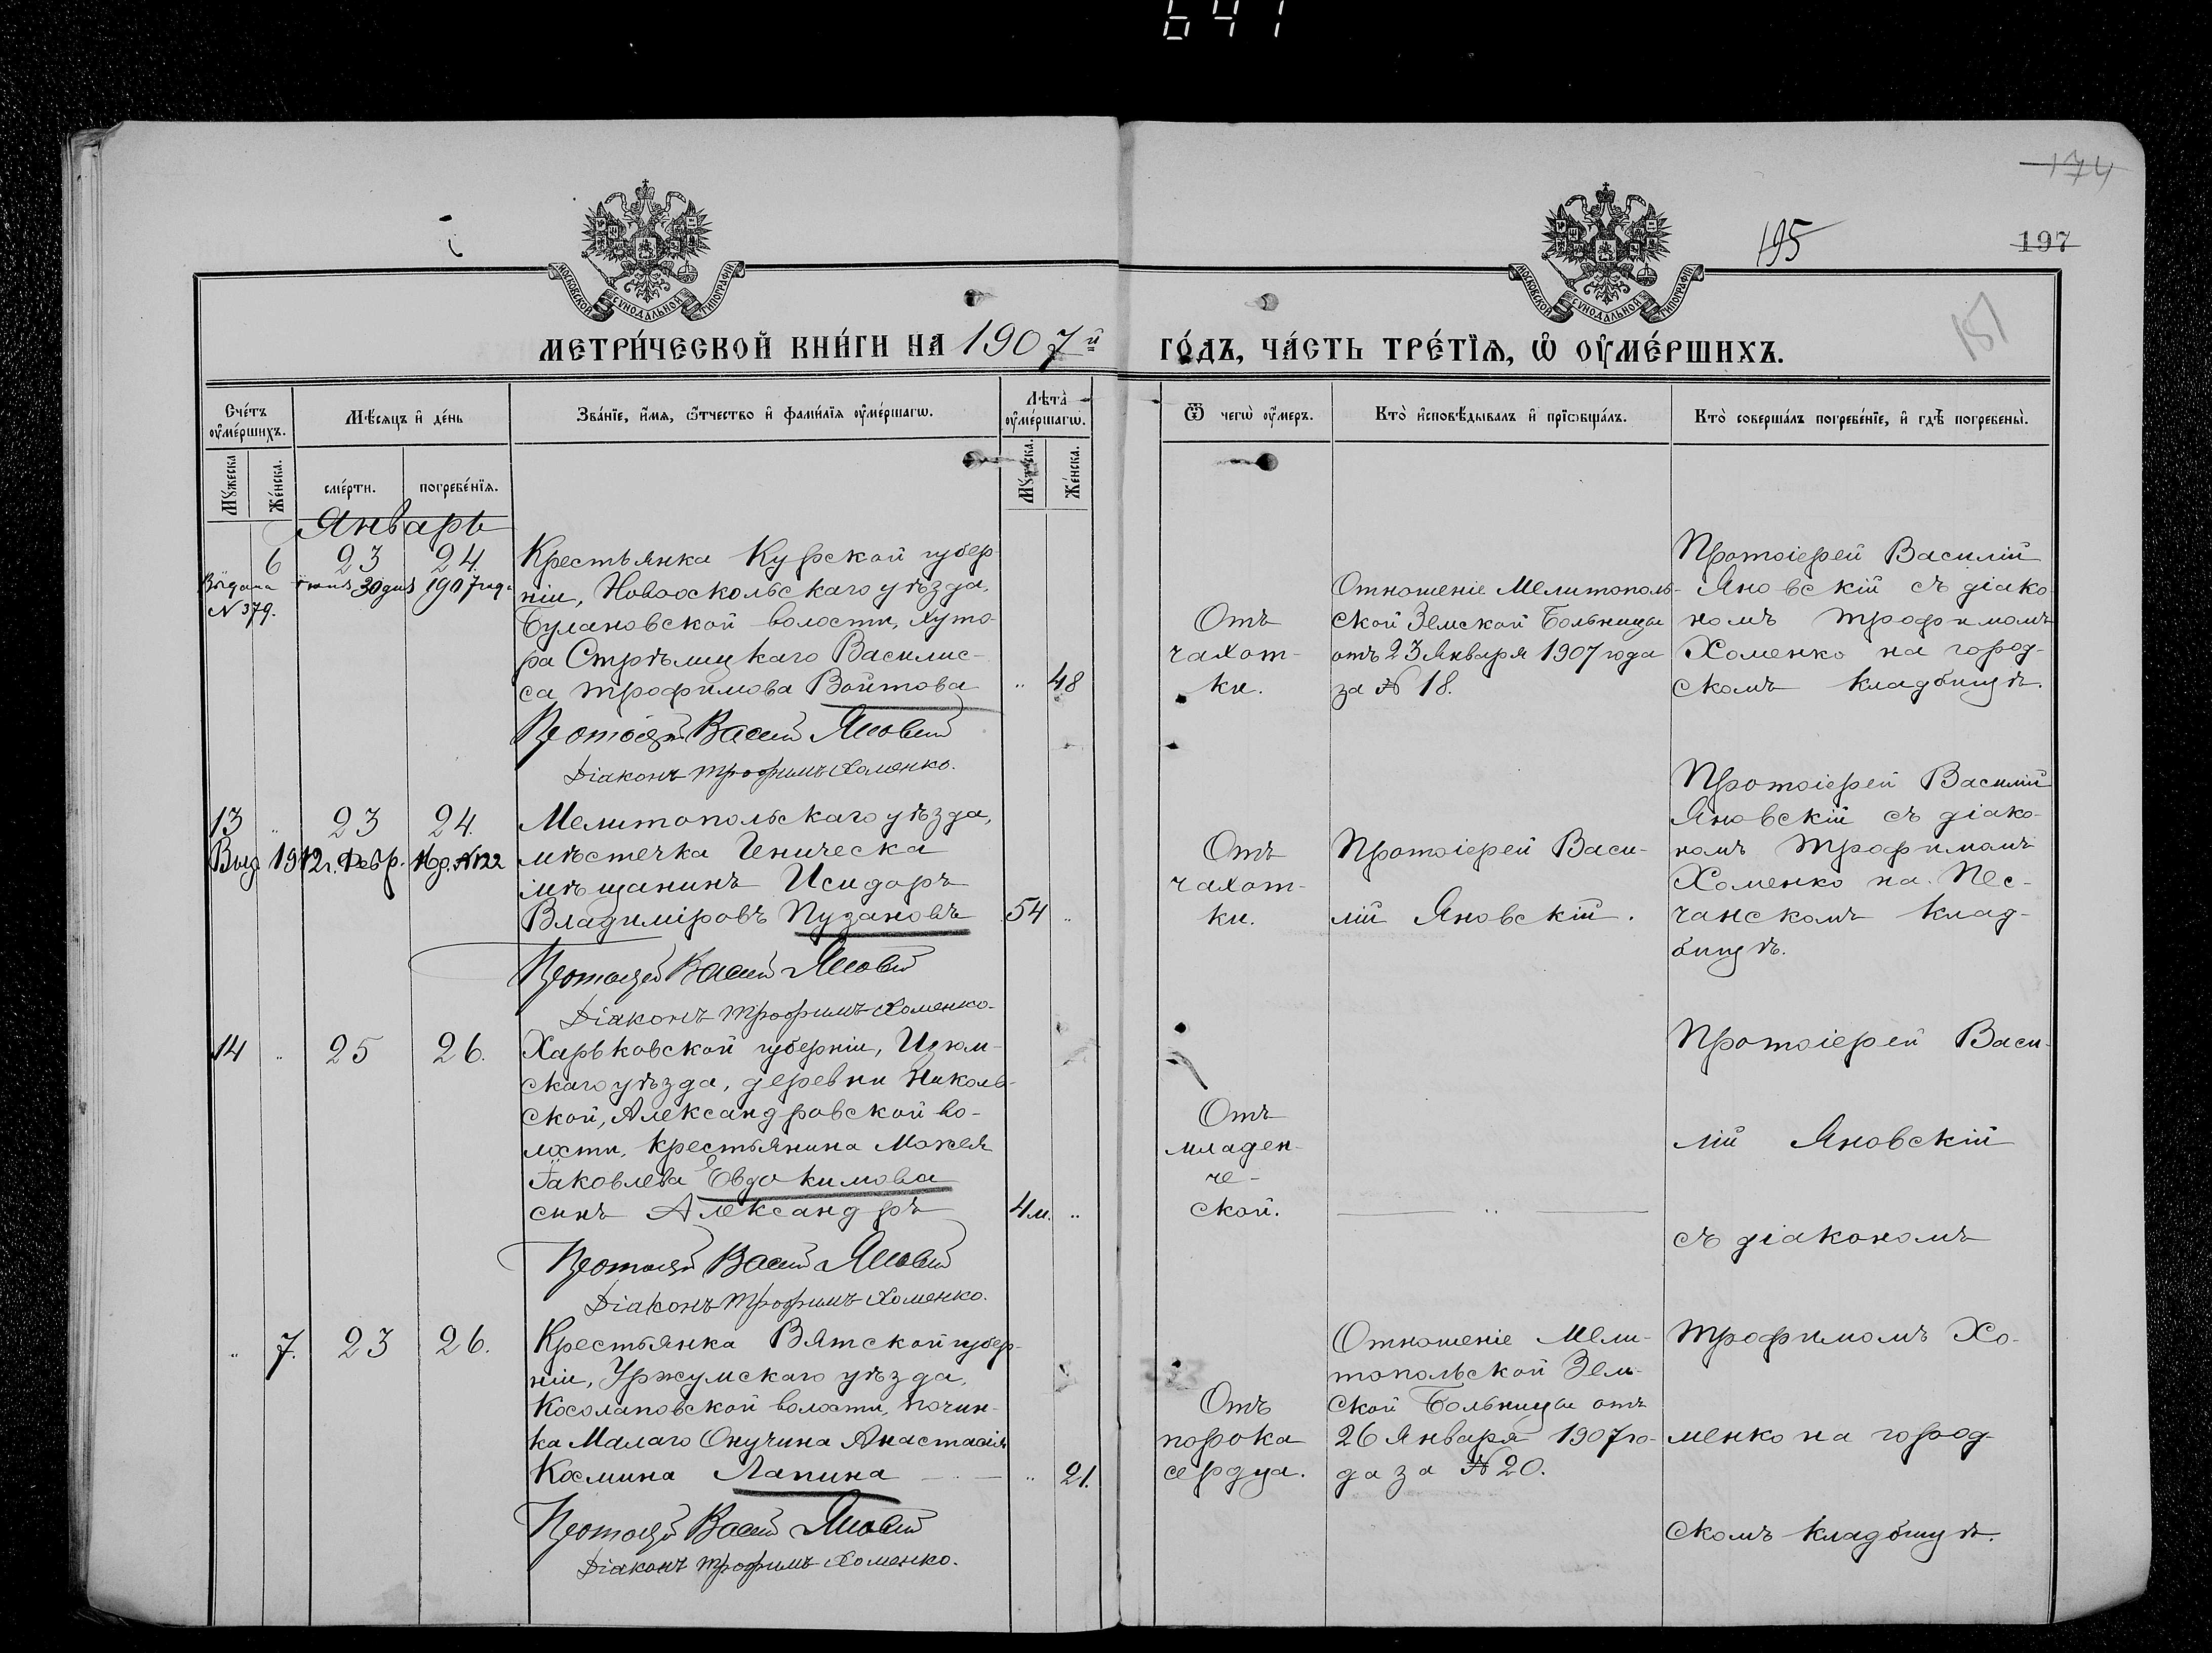 641
174
195
197
151
МОСКОВСКОЙ СѴНОДАЛЬНОЙ ТИПОГРАФІИ
МОСКОВСКОЙ СѴНОДАЛЬНОЙ ТИПОГРАФІИ
МЕТРИ́ЧЕСКОЙ КНИ́ГИ НА 1907й ГО́ДЪ, ЧА́СТЬ ТРЕ́ТІѦ, Ѡ҆ ОУ҆МЕ́РШИХЪ.
Сче́тъ оу҆ме́ршихъ.
Мѣ́сяцъ и҆ де́нь
Зва́нїе, и҆́мѧ, ѻ҆́тчество и҆ фами́лїѧ оу҆ме́ршагѡ.
Лѣта̀ оу҆ме́ршагѡ.
Ѿ чегѡ̀ оу҆́меръ.
Кто̀ и҆сповѣ́дывалъ и҆ прїѡбща́лъ.
Кто̀ соверша́лъ погребе́нїе, и҆ гдѣ̀ погребены̀.
Мꙋ́жеска
Же́нска.
сме́рти.
погребе́нїѧ.
Мꙋ́жеска.
Же́нска.
Январь
6 23 24.
Выдана іюня 30 дня 1907 год.
№ 379.
Крестьянка Курской губер-
ніи, Новооскольскаго уѣзда,
Булановской волости, хуто-
ра Стрѣлицкаго Василис-
са Трофимова Войтова „ 48
Протоіерей Василій Яновскій
Діаконъ Трофимъ Хоменко.
Отъ
чахот-
ки.
Отношеніе Мелитополь-
ской Земской Больницы
отъ 23 Января 1907 года
за № 18.
Протоіерей Василій
Яновскій съ діако-
номъ Трофимомъ
Хоменко на город-
скомъ кладбищѣ.
13 „ 23 24.
Выд. 1912 г. Февр. № 122
Мелитопольскаго уѣзда,
мѣстечка Геническа
мѣщанинъ Исидоръ
Владиміровъ Пузановъ 54 „
Протоіерей Василій Яновскій
Діаконъ Трофимъ Хоменко.
Отъ
чахот-
ки.
Протоіерей Васи-
лій Яновскій.
Протоіерей Василій
Яновскій съ діако-
номъ Трофимомъ
Хоменко на Пес-
чанскомъ клад-
бищѣ.
14 „ 25 26.
Харьковской губерніи, Изюм-
скаго уѣзда, деревни Николь-
ской, Александровской во-
лости, крестьянина Мокея
Іаковлева Евдокимова
сынъ Александръ 4 м. „
Протоіерей Василій Яновскій
Діаконъ Трофимъ Хоменко.
Отъ
младен-
че-
ской.
— „ —
Протоіерей Васи-
лій Яновскій
съ діакономъ
„ 7. 23 26.
Крестьянка Вятской губер-
ніи, Уржумскаго уѣзда,
Косолаповской волости, почин-
ка Малаго Онучина Анастасія
Космина Лапина „ 21.
Протоіерей Василій Яновскій
Діаконъ Трофимъ Хоменко.
Отъ
порока
сердца.
Отношеніе Мели-
топольской Зем-
ской Больницы отъ
26 Января 1907 го-
да за № 20.
Трофимомъ Хо-
менко на город-
скомъ кладбищѣ.